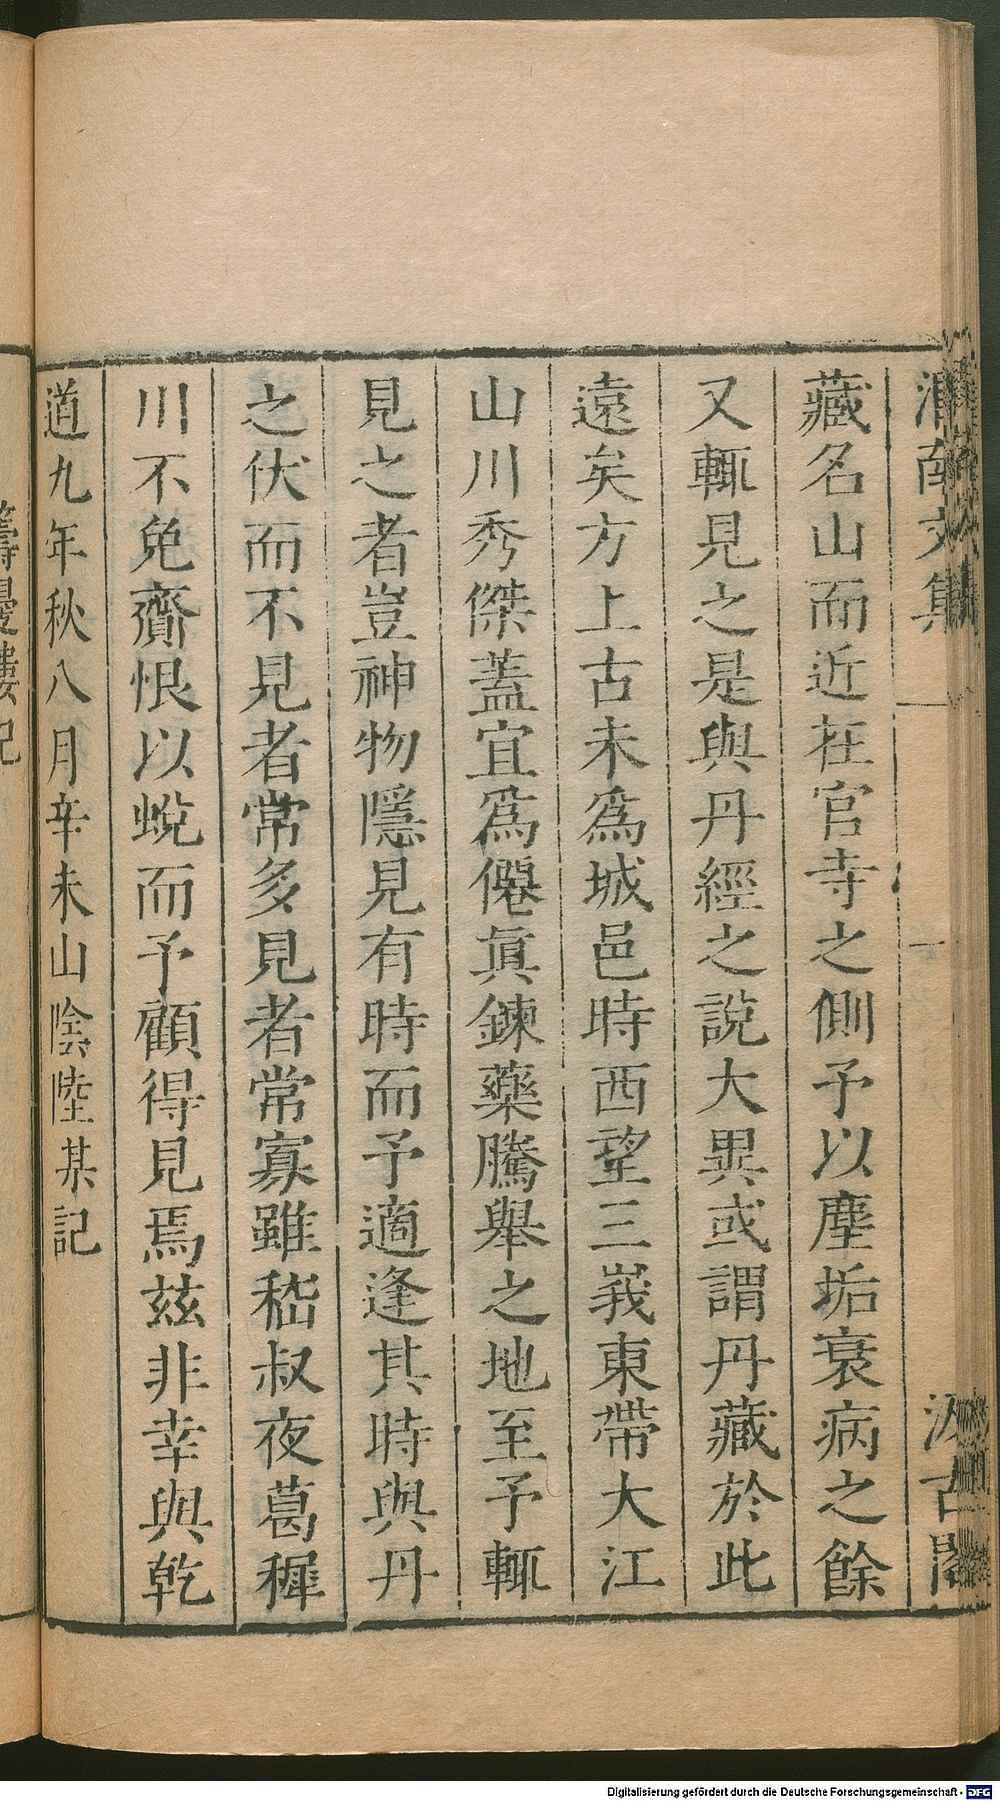 渭南文集
汲古閣
藏名山而近在官寺之側予以塵垢衰病之餘
又輒見之是與丹經之說大異或謂丹藏於此
遠矣方上古未爲城邑時西望三峩東帶大江
山川秀傑蓋宜爲僊眞鍊藥騰舉之地至予輒
見之者豈神物隱見有時而予適逢其時與丹
之伏而不見者常多見者常寡雖嵇叔夜葛穉
川不免齎恨以蛻而予顧得見焉兹非幸與乾
道九年秋八月辛未山陰陸某記
籌邊樓記
Digitalisierung gefördert durch die Deutsche Forschungsgemeinschaft - DFG